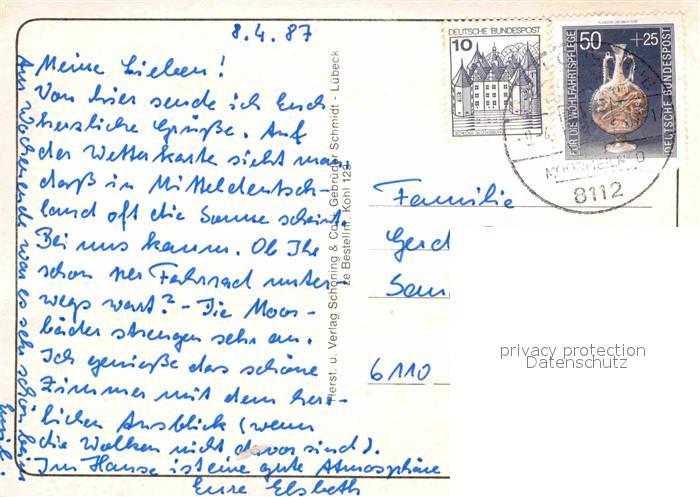 8.4.87
Meine Lieben!
Von hier sende ich Euch
herzliche Grüße. Auf
der Wetterkarte sieht man
daß in Mitteldeutsch-
land oft die Sonne scheint.
Bei uns kaum. Ob Ihr
schon per Fahrrad unter-
wegs wart? - Die Moor-
bäder strengen sehr an.
Ich genieße das schöne
Zimmer mit dem herr-
lichen Ausblick (wenn
die Wolken nicht davor sind).
Im Hause ist eine gute Atmosphäre
Eure Elsbeth
Am Wochenende war es sehr schön bei
Herst. u. Verlag Schöning & Co + Gebrüder Schmidt - Lübeck
DEUTSCHE BUNDESPOST
10
50 +25
FÜR DIE WOHLFAHRTSPFLEGE
DEUTSCHE BUNDESPOST
8112
Familie
Gerd
6110
privacy protection
Datenschutz